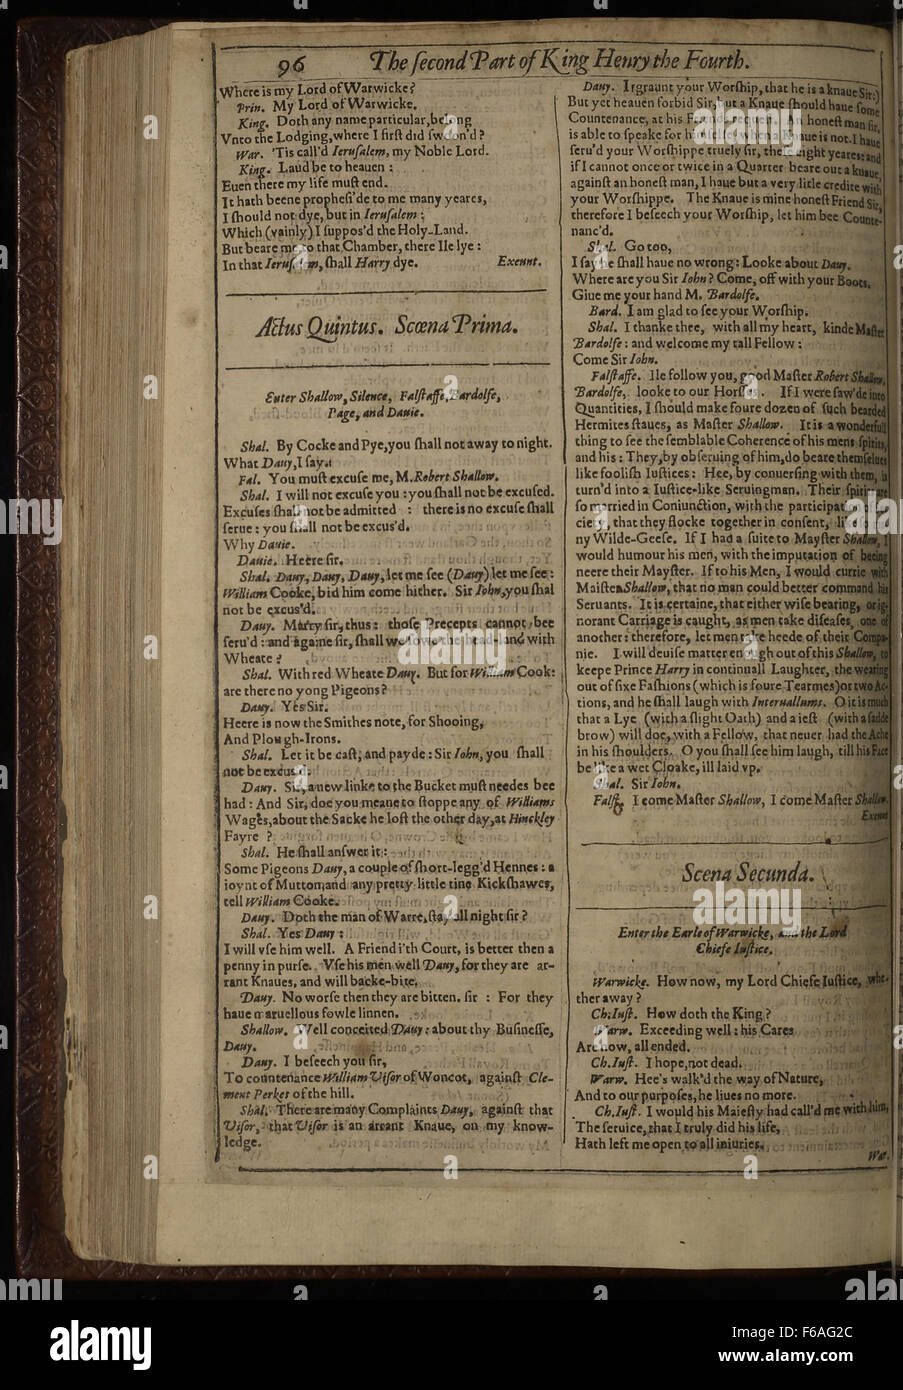 96 The ſecond Part of King Henry the Fourth.
Where is my Lord of Warwicke?
Prin. My Lord of Warwicke.
King. Doth any name particular, belong
Vnto the Lodging, where I firſt did ſwoon'd?
War. 'Tis call'd Ieruſalem, my Noble Lord.
King. Laud be to heauen:
Euen there my life muſt end.
It hath beene propheſi'de to me many yeares,
I ſhould not dye, but in Ieruſalem:
Which (vainly) I ſuppos'd the Holy-Land.
But beare me to that Chamber, there Ile lye:
In that Ieruſalem, ſhall Harry dye. Exeunt.
Actus Quintus. Scœna Prima.
Enter Shallow, Silence, Falſtaffe, Bardolfe,
Page, and Dauie.
Shal. By Cocke and Pye, you ſhall not away to night.
What Dauy, I ſay.
Fal. You muſt excuſe me, M. Robert Shallow.
Shal. I will not excuſe you: you ſhall not be excuſed.
Excuſes ſhall not be admitted: there is no excuſe ſhall
ſerue: you ſhall not be excus'd.
Why Dauie.
Dauie. Heere ſir.
Shal. Dauy, Dauy, Dauy, let me ſee (Dauy) let me ſee:
William Cooke, bid him come hither. Sir Iohn, you ſhal
not be excus'd.
Dauy. Marry ſir, thus: thoſe Precepts cannot bee
ſeru'd: and againe ſir, ſhall we ſowe the head-land with
Wheate?
Shal. With red Wheate Dauy. But for William Cook:
are there no yong Pigeons?
Dauy. Yes Sir.
Heere is now the Smithes note, for Shooing,
And Plough-Irons.
Shal. Let it be caſt, and payde: Sir Iohn, you ſhall
not be excus'd.
Dauy. Sir, a new linke to the Bucket muſt needes bee
had: And Sir, doe you meane to ſtoppe any of Williams
Wages, about the Sacke he loſt the other day, at Hinckley
Fayre?
Shal. He ſhall anſwer it:
Some Pigeons Dauy, a couple of ſhort-legg'd Hennes: a
ioynt of Mutton, and any pretty little tine Kickſhawes,
tell William Cooke.
Dauy. Doth the man of Warre, ſtay all night ſir?
Shal. Yes Dauy:
I will vſe him well. A Friend i'th Court, is better then a
penny in purſe. Vſe his men well Dauy, for they are ar-
rant Knaues, and will backe-bite.
Dauy. No worſe then they are bitten, ſir: For they
haue maruellous fowle linnen.
Shallow. Well conceited Dauy: about thy Buſineſſe,
Dauy.
Dauy. I beſeech you ſir,
To countenance William Viſor of Woncot, againſt Cle-
ment Perkes of the hill.
Shal. There are many Complaints Dauy, againſt that
Viſor, that Viſor is an arrant Knaue, on my know-
ledge.
Dauy. I graunt your Worſhip, that he is a knaue Sir:)
But yet heauen forbid Sir, but a Knaue ſhould haue ſome
Countenance, at his Friends requeſt. An honeſt man ſir,
is able to ſpeake for himſelfe, when a Knaue is not. I haue
ſeru'd your Worſhippe truely ſir, theſe eight yeares: and
if I cannot once or twice in a Quarter beare out a knaue,
againſt an honeſt man, I haue but a very litle credite with
your Worſhippe. The Knaue is mine honeſt Friend Sir,
therefore I beſeech your Worſhip, let him bee Counte-
nanc'd.
Shal. Go too,
I ſay he ſhall haue no wrong: Looke about Dauy.
Where are you Sir Iohn? Come, off with your Boots.
Giue me your hand M. Bardolfe.
Bard. I am glad to ſee your Worſhip.
Shal. I thanke thee, with all my heart, kinde Maſter
Bardolfe: and welcome my tall Fellow:
Come Sir Iohn.
Falſtaffe. Ile follow you, good Maſter Robert Shallow.
Bardolfe, looke to our Horſſes. If I were ſaw'de into
Quantities, I ſhould make foure dozen of ſuch bearded
Hermites ſtaues, as Maſter Shallow. It is a wonderfull
thing to ſee the ſemblable Coherence of his mens ſpirits,
and his: They, by obſeruing of him, do beare themſelues
like fooliſh Iuſtices: Hee, by conuerſing with them, is
turn'd into a Iuſtice-like Seruingman. Their ſpirits are
ſo married in Coniunction, with the participation of So-
ciety, that they flocke together in conſent, like ſo ma-
ny Wilde-Geeſe. If I had a ſuite to Mayſter Shallow, I
would humour his men, with the imputation of beeing
neere their Mayſter. If to his Men, I would currie with
Maiſter Shallow, that no man could better command his
Seruants. It is certaine, that either wiſe bearing, or ig-
norant Carriage is caught, as men take diſeaſes, one of
another: therefore, let men take heede of their Compa-
nie. I will deuiſe matter enough out of this Shallow, to
keepe Prince Harry in continuall Laughter, the wearing
out of ſixe Faſhions (which is foure Tearmes) or two Ac-
tions, and he ſhall laugh with Interuallums. O it is much
that a Lye (with a ſlight Oath) and a ieſt (with a ſadde
brow) will doe, with a Fellow, that neuer had the Ache
in his ſhoulders. O you ſhall ſee him laugh, till his Face
be like a wet Cloake, ill laid vp.
Shal. Sir Iohn.
Falſt. I come Maſter Shallow, I come Maſter Shallow.
Exeunt
Scena Secunda.
Enter the Earle of Warwicke, and the Lord
Chiefe Iuſtice.
Warwicke. How now, my Lord Chiefe Iuſtice, whe-
ther away?
Ch. Iuſt. How doth the King?
Warw. Exceeding well: his Cares
Are now, all ended.
Ch. Iuſt. I hope, not dead.
Warw. Hee's walk'd the way of Nature,
And to our purpoſes, he liues no more.
Ch. Iuſt. I would his Maieſty had call'd me with him,
The ſeruice, that I truly did his life,
Hath left me open to all iniuries.
War.
alamy stock photo
F6AG2C
www.alamy.com